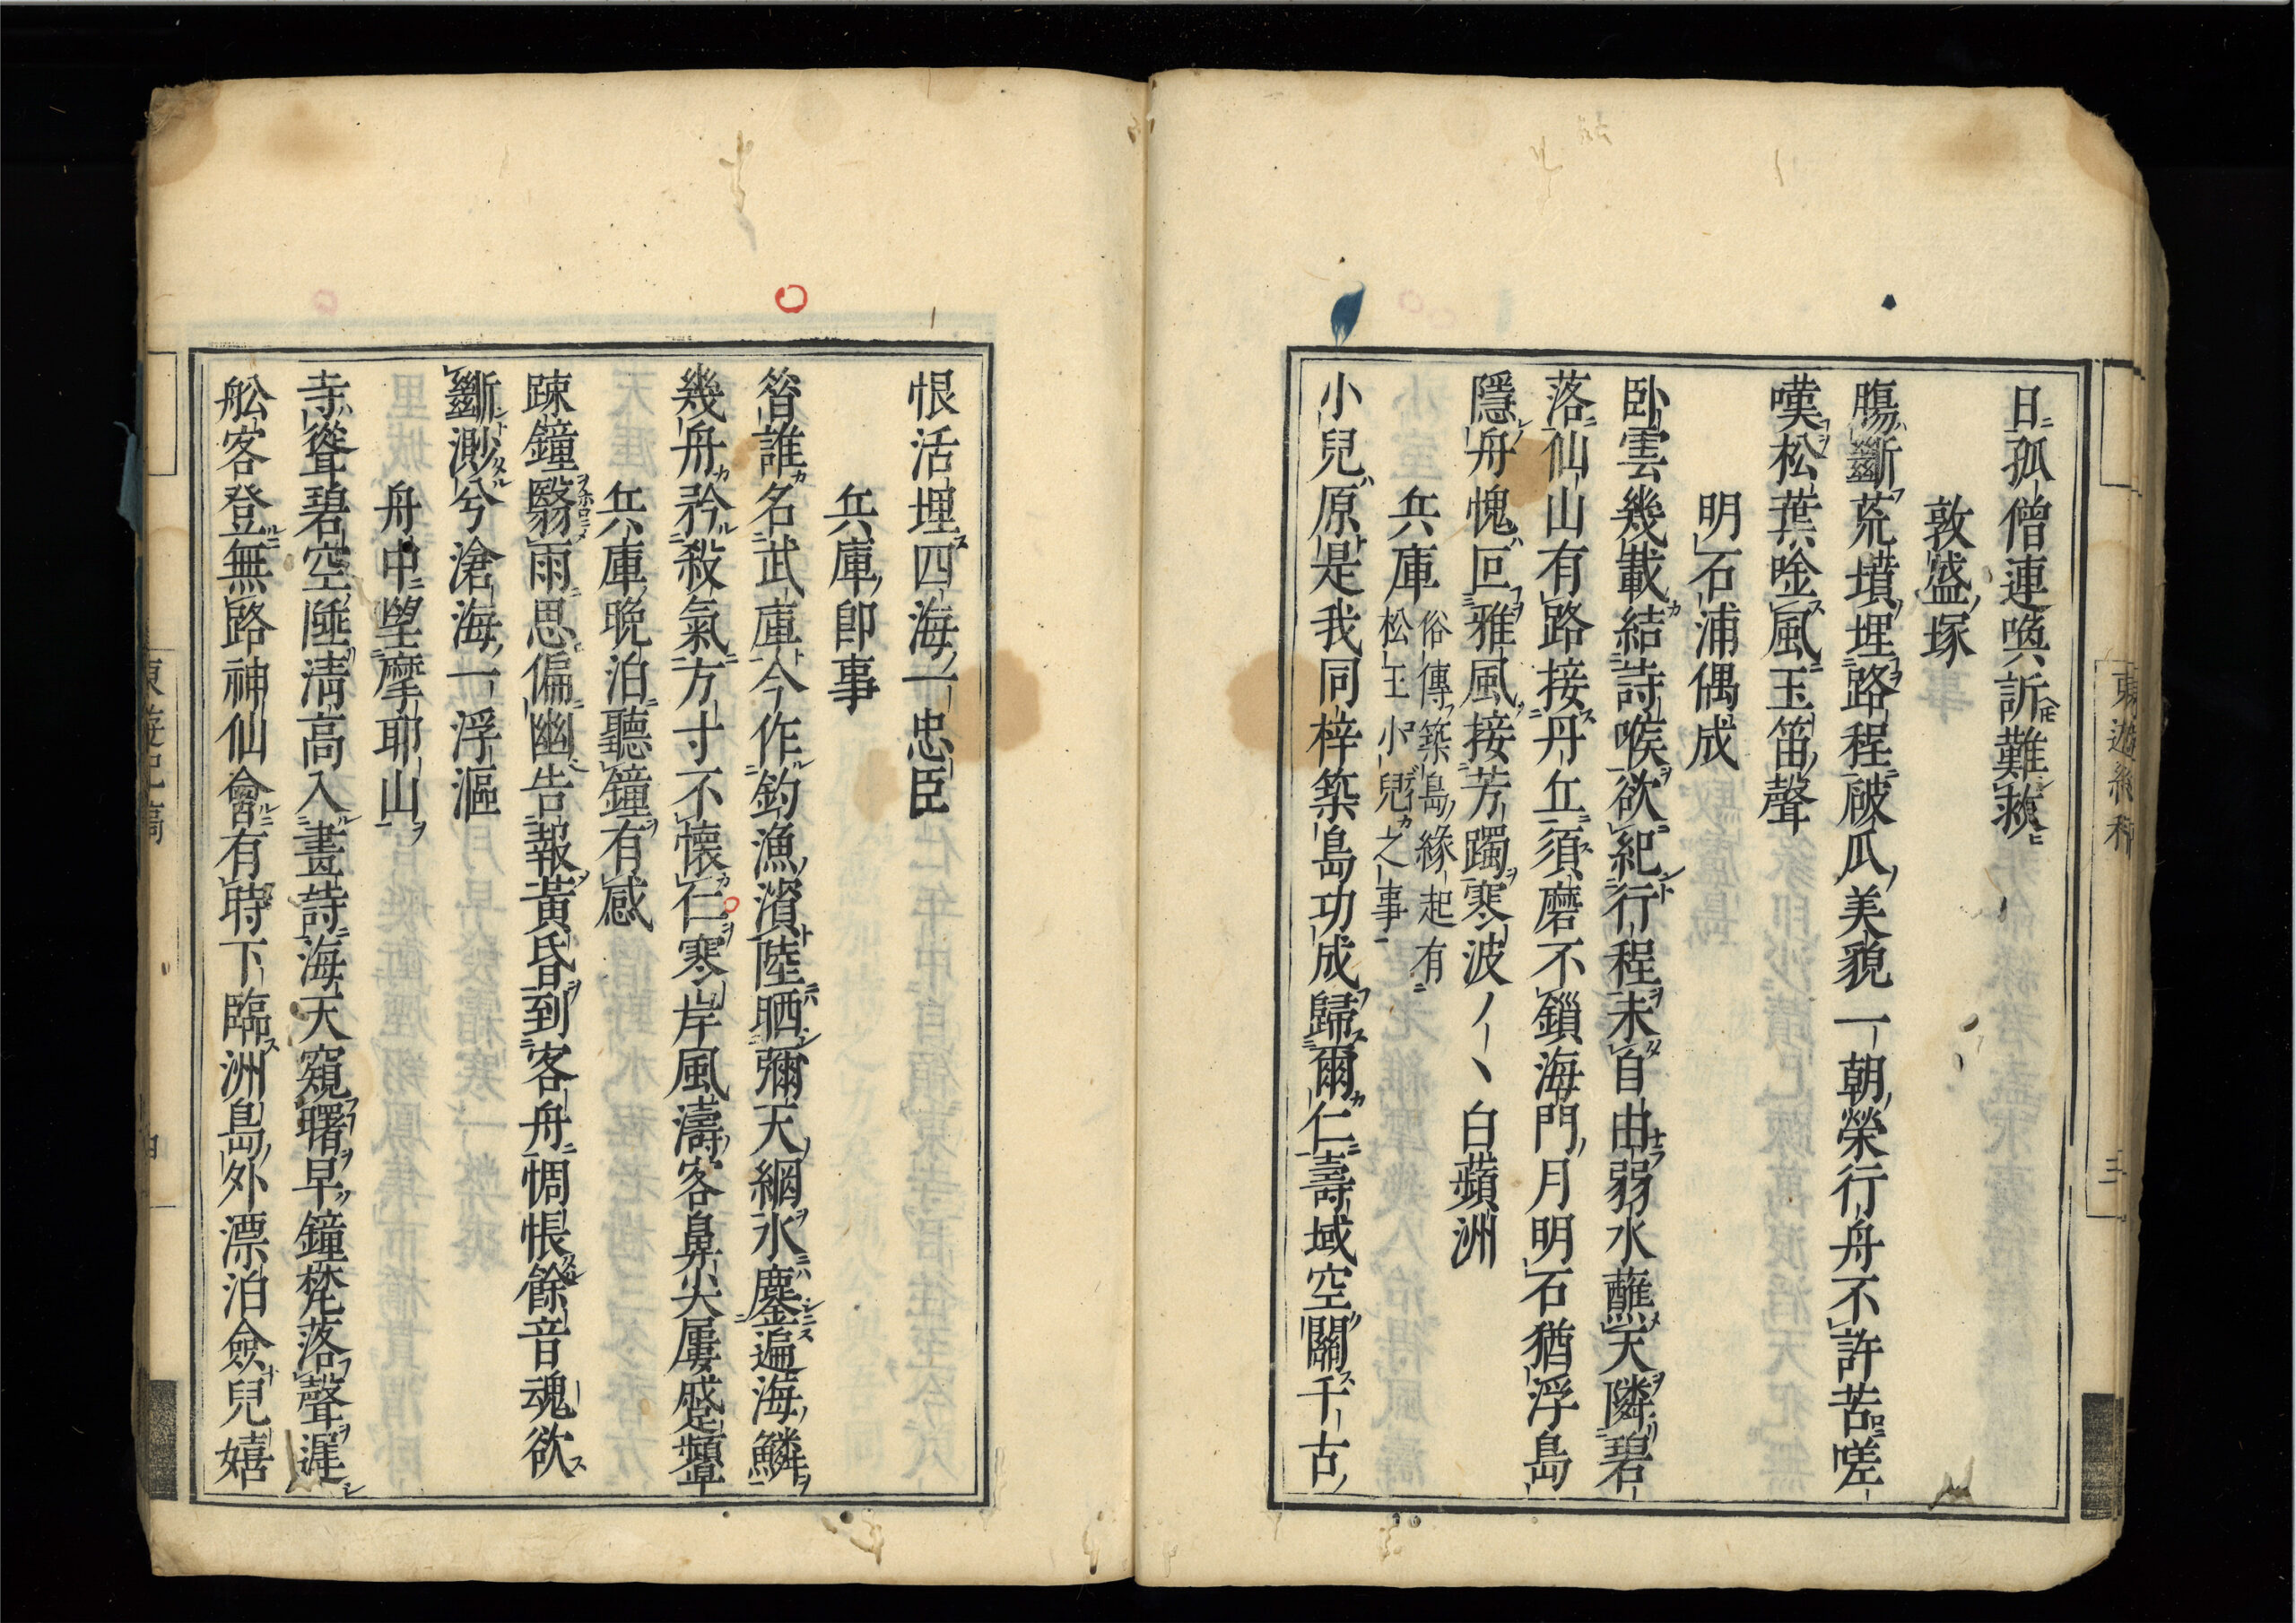 日孤僧連喚訴難救
敦盛塚
腸斷荒墳埋路程破瓜美貌一朝榮行舟不許苦嗟
嘆松葉唫風玉笛聲
明石浦偶成
卧雲幾載結詩喉欲紀行程未自由弱水蘸天隣碧
落仙山有路接丹丘須磨不鎖海門月明石猶浮島
隱舟愧囘雅風接芳躅寒波ノ丶白蘋洲
兵庫
俗傳築島緣起有
松王小兒之事
小兒原是我同梓築島功成歸爾仁壽域空關千古
恨活埋四海一忠臣
兵庫即事
昝誰名武庫今作釣漁濱陸晒彌天網水鏖遍海鱗
幾舟矜殺氣方寸不懷仁寒岸風濤客鼻尖屢蹙顰
兵庫晚泊聽鐘有感
踈鐘翳雨思偏幽告報黃昏到客舟惆悵餘音魂欲
斷渺兮滄海一浮漚
舟中望摩耶山
寺聳碧空陲淸高入畫詩海天窺曙早鐘梵落聲遲
舩客登無路神仙會有時下臨洲島外漂泊僉兒嬉